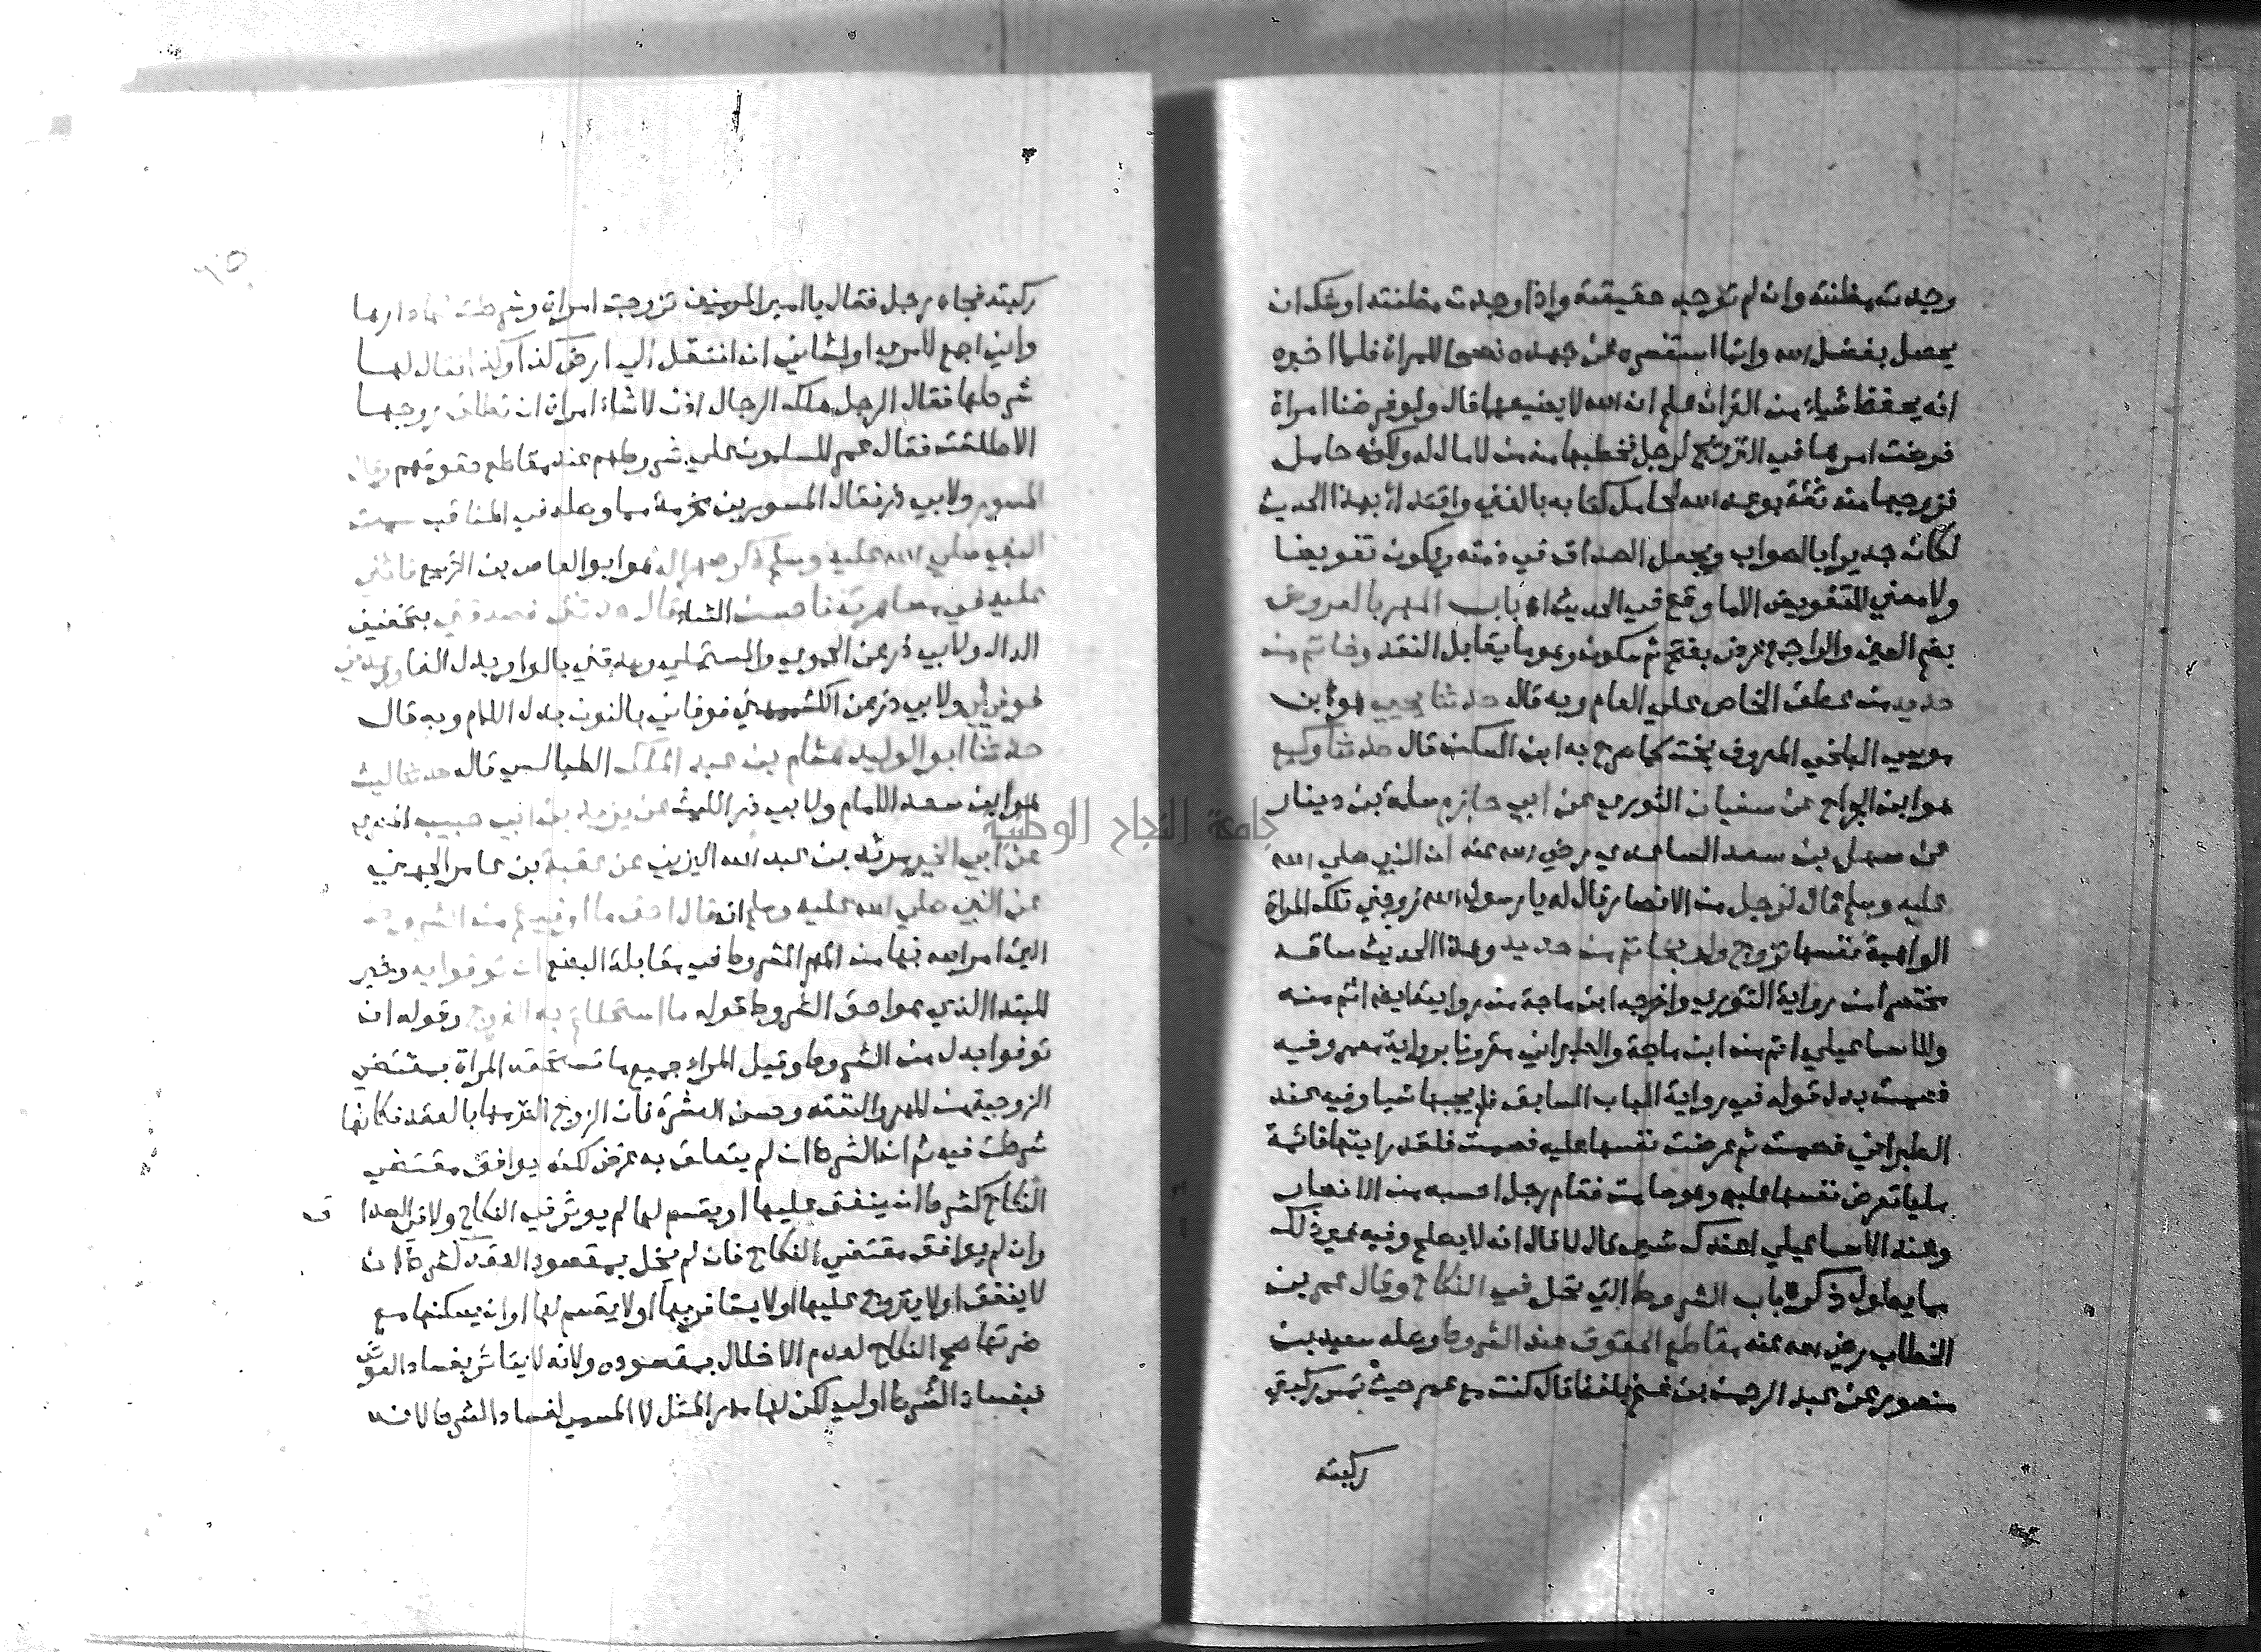 وجدت مظنته وان لم توجد حقيقته واذا وجدت مظنته اوشك ان
يحصل بفضل الله وانما استفسره عن جهده نصحا للمراة فلما اخبره
انه يحفظ شياء من القران علم ان الله لا يضيعهما قال ولو فرضنا امراة
فوضت امرها في التزويج لرجل فخطبها منه من لا مال له ولكنه حامل
فزوجها منه ثقة بوعد الله لحامل كتابه بالغنى واقتداء بهذا الحديث
لكان جديرا بالصواب ويجعل الصداق في ذمته ويكون تفويضا
ولا معني للتفويض الا ما وقع في الحديث اه باب المهر بالعروض
بضم العين والراجمع عرض بفتح ثم سكون وهو ما يقابل النقد وخاتم من
حديد من عطف الخاص علي العام وبه قال حدثنا يحيي هو ابن
موسي البلخي المعروف بخت كما صرح به ابن السكن قال حدثنا وكيع
هو ابن الجراح عن سفيان الثوري عن ابي حازم سلمة بن دينار
عن سهل بن سعد الساعدي رضي الله عنه ان النبي صلي الله
عليه وسلم قال لرجل من الانصار قال له يا رسول الله زوجني تلك المراة
الواهبة نفسها تزوج ولو بخاتم من حديد وهذا الحديث ساقه
مختصرا من رواية الثوري واخرجه ابن ماجة من روايته ايضا اتم منه
والاسماعيلي اتم من ابن ماجة والطبراني مقرونا برواية معمر وفيه
فصمت بدل قوله في رواية الباب السابق فلم يجبها شيا وفيه عند
الطبراني فصمت ثم عرضت نفسها عليه فصمت فلقد رايتها قائمة
مليا تعرض نفسها عليه وهو صامت فقام رجل احسبه من الانصار
وعند الاسماعيلي اعندك شيى قال لا قال انه لا يصلح وفيه غير ذلك
مما يطول ذكره باب الشروط التي تحل في النكاح وقال عمر بن
الخطاب رضي الله عنه مقاطع الحقوق عند الشروط وصله سعيد بن
منصور عن عبد الرحمن بن غنم بلفظ قال كنت مع عمر حيث تمس ركبتي
ركبته
ركبته فجاه رجل فقال يا امير المومنين تزوجت امراة وشرطت لها دارها
واني اجمع لامري او لشاني ان انتقل الي ارض كذا وكذا فقال لها
شرطها فقال الرجل هلك الرجال اذن لا تشاء امراة ان تطلق زوجها
الا طلقت فقال عمر المسلمون علي شروطهم عند مقاطع حقوقهم وقال
المسور ولابي ذر فقال المسور بن مخرمة مما وصله في المناقب سمعت
النبي صلي الله عليه وسلم ذكر صهرا له هو ابو العاص بن الربيع فاثني
عليه في مصاهرته فاحسن الثناء قال حدثني فصدقني بتخفيف
الدال ولابي ذر عن الحموي والمستملي وصدقني بالواو بدل الفا ووعدني
فوفي لي ولابي ذر عن الكشميهني فوفاني بالنون بدل اللام وبه قال
حدثنا ابو الوليد هشام بن عبد الملك الطيالسي قال حدثنا ليث
هو ابن سعد الامام ولابي ذر الليث عن يزيد بن ابي حبيب
عن ابي الخير مرثد بن عبد الله اليزني عن عقبة بن عامر الجهني
عن النبي صلي الله عليه وسلم انه قال احق ما اوفيتم من الشروط
التي امر الله بها من المهر المشروط في مقابلة البضع ان توفوا به وخبر
المبتدا الذي هو احق الشروط قوله ما استحللتم به الفروج وقوله ان
توفوا بدل من الشروط وقيل المراد جميع ما تستحقه المراة بمقتضي
الزوجية من المهر والنفقه وحسن العشرة فان الزوج التزمها بالعقد فكانها
شرطت فيه ثم ان الشرط ان لم يتعلق به غرض لكنه يوافق مقتضي
النكاح كشرط ان ينفق عليها او يقسم لها لم يوثر في النكاح ولا في الصدا ق
وان لم يوافق مقتضي النكاح فان لم يخل بمقصود العقد كشرط ان
لا ينفق او لا يتزوج عليها او لا يسافر بها او لا يقسم لها او ان يسكنها مع
ضرتها صح النكاح لعدم الاخلال بمقصوده ولانه لا يتاثر بفساد العوض
فبفساد الشرط اولي لكن لها مهر المثل لا المسمي لفساد الشرط لانه
جامعة النجاح الوطنية